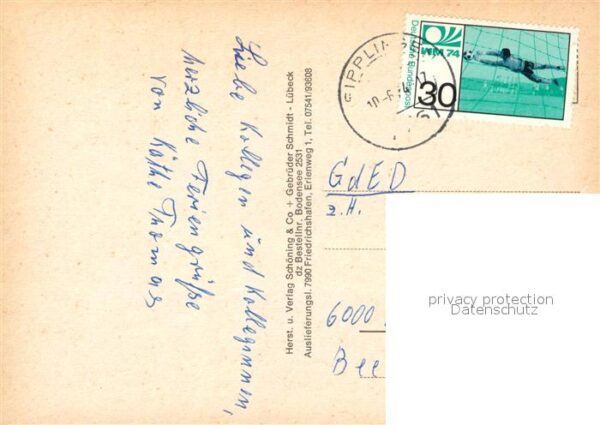 Liebe Kollegen und Kolleginnen,
herzliche Feriengrüße
von Käthe Thomas
Herst. u. Verlag Schöning & Co + Gebrüder Schmidt - Lübeck
dz Bestellnr. Bodensee 2531
Auslieferungsl. 7990 Friedrichshafen, Erlenweg 1, Tel. 07541/93608
WM 74
Deutsche Bundespost
30
GdED
z. H.
6000
privacy protection
Datenschutz